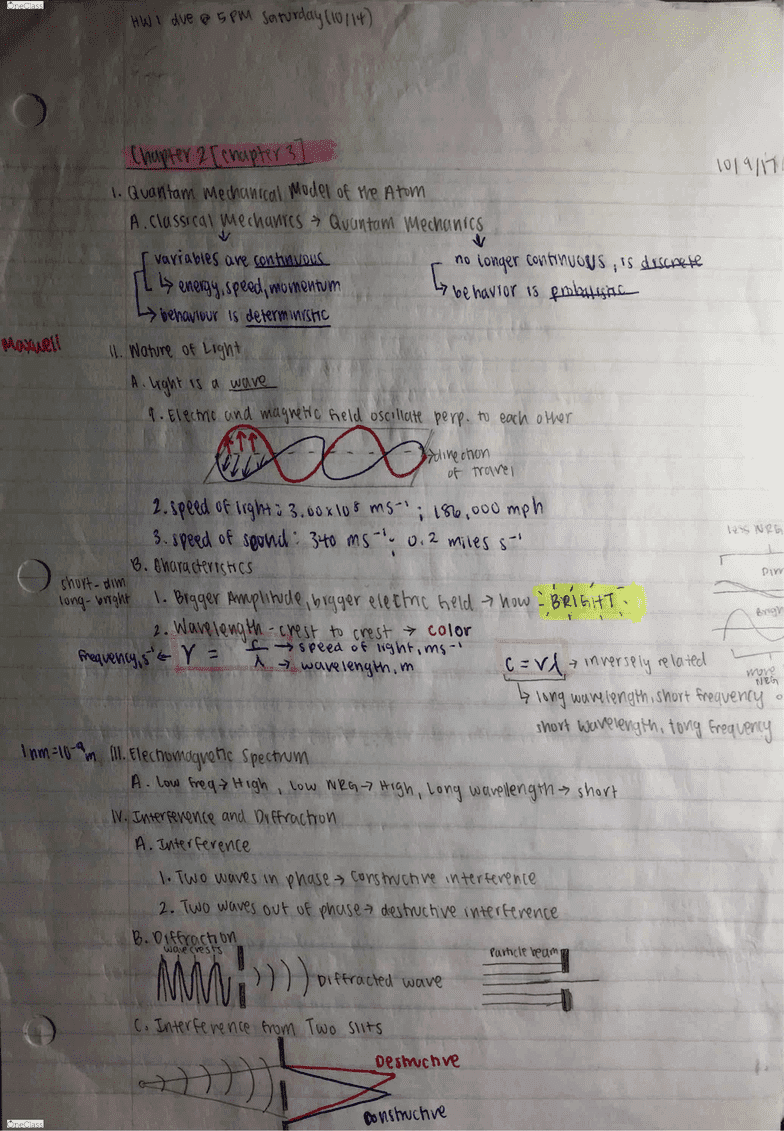 OneClass
HW 1 due @ 5 PM Saturday (10/14)
Chapter 2 [Chapter 3]
10/9/17
I. Quantam Mechanical Model of the Atom
A. Classical Mechanics → Quantam Mechanics
variables are continuous
no longer continuous, is discrete
↳ energy, speed, momentum
↳ behavior is probalistic
↳ behaviour is deterministic
Maxwell
II. Nature of Light
A. Light is a wave
1. Electric and magnetic field oscillate perp. to each other
direction
of travel
2. speed of light: 3.00x10⁸ ms⁻¹; 186,000 mph
3. speed of sound: 340 ms⁻¹; 0.2 miles s⁻¹
B. Characteristics
less NRG
short-dim
long-bright
1. Bigger Amplitude, bigger electric field → how - BRIGHT
Dim
Bright
2. Wavelength - crest to crest → color
more
NRG
Frequency, s⁻¹ ← ν = c/λ → speed of light, ms⁻¹
→ wavelength, m
c = νλ → inversely related
↳ long wavelength, short frequency
short wavelength, long frequency
1 nm = 10⁻⁹ m
III. Electromagnetic Spectrum
A. Low Freq → High, Low NRG → High, Long wavelength → short
IV. Interference and Diffraction
A. Interference
1. Two waves in phase → constructive interference
2. Two waves out of phase → destructive interference
B. Diffraction
wave crests
Diffracted wave
Particle beam
C. Interference from Two Slits
Destructive
Constructive
OneClass